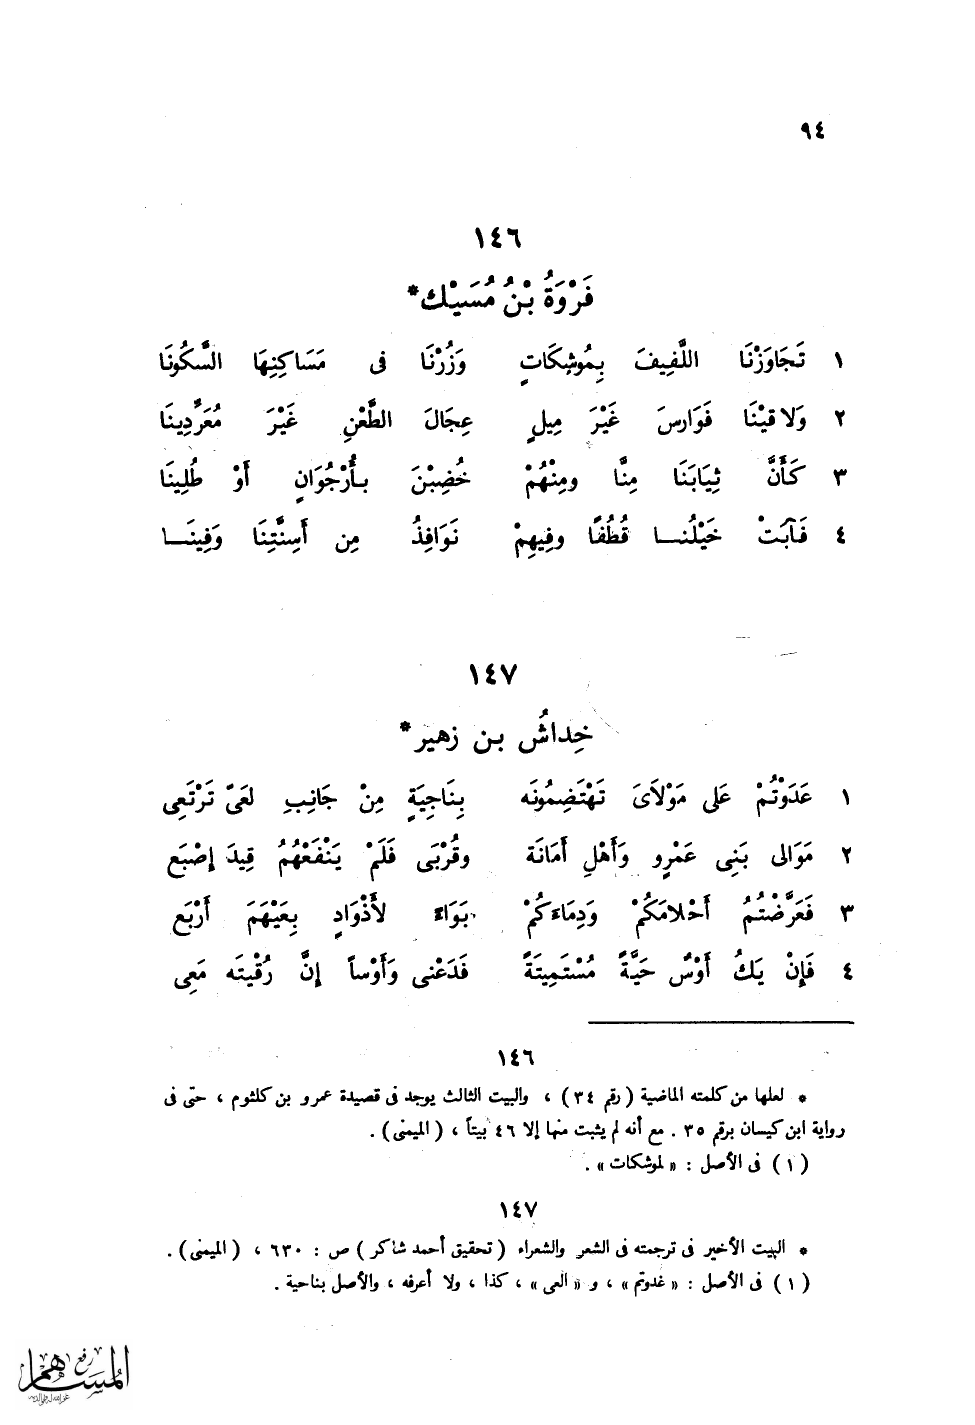 ٩٤
١٤٦
فَرْوَةُ بْنُ مُسَيْك*
١ تَجَاوَزْنَا اللَّفِيفَ بِمُوشِكَاتٍ وَزُرْنَا فى مَسَاكِنِهَا السَّكُونَا
٢ وَلاقَيْنَا فَوَارسَ غَيْرَ مِيلٍ عِجَالَ الطَّعْنِ غَيْرَ مُعَرِّدِينَا
٣ كَأَنَّ ثِيَابَنَا مِنَّا ومِنْهُمْ خُضِبْنَ بِأُرْجُوَانٍ أَوْ طُلِينَا
٤ فَآبَتْ خَيْلُنا قُطُفًا وفِيهِمْ نَوَافِذُ مِن أَسِنَّتِنَا وَفِينَا
١٤٧
خِداشُ بن زهير*
١ عَدَوْتُمْ عَلى مَوْلاىَ تَهْتَضِمُونَه بِنَاجِيَةٍ مِنْ جَانِبِ لَعىّ تَرْتَعِى
٢ مَوَالى بَنِى عَمْرٍو وَأَهْلِ أَمَانَة وقُرْبَى فَلَمْ يَنْفَعْهُمُ قِيدَ إصْبَع
٣ فَعَرَّضْتُمُ أَحْلامَكُمْ وَدِمَاءَكُمْ بَوَاءً لأَذْوَادٍ بِعَيْهَمَ أَرْبَع
٤ فَإِنْ يَكُ أَوْسٌ حَيَّةً مُسْتَمِيتَةً فَدَعْنى وَأَوْساً إِنَّ رُقْيَتَه مَعِى
١٤٦
* لعلها من كلمته الماضية (رقم ٣٤) ، والبيت الثالث يوجد فى قصيدة عمرو بن كلثوم ، حتى فى
رواية ابن كيسان برقم ٣٥ . مع أنه لم يثبت منها إلا ٤٦ بيتاً ، (الميمنى) .
(١) فى الأصل : « لموشكات» .
١٤٧
* البيت الأخير فى ترجمته فى الشعر والشعراء (تحقيق أحمد شاكر) ص : ٦٣٠ ، (الميمنى) .
(١) فى الأصل : «غدوتم» ، و «العى» ، كذا ، ولا أعرفه ، والأصل بناحية .
رفع
المساهم